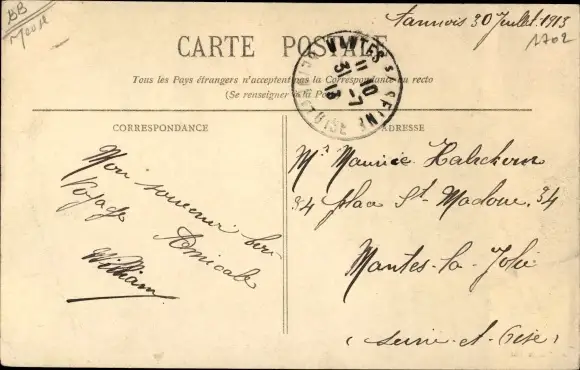 BB
Meuse
Tannois 30 Juillet 1913
1702
CARTE POSTALE
Tous les Pays étrangers n'acceptent pas la Correspondance au recto
(Se renseigner à la Po
MANTES S. SEINE
11 - 10
31 - 7
13
SEINE-ET-OISE
CORRESPONDANCE
ADRESSE
Mon souvenir
Voyage Amicale
William
Mr Maurice
34 place St Maclou. 34
Mantes-la-Jolie
(Seine-et-Oise)